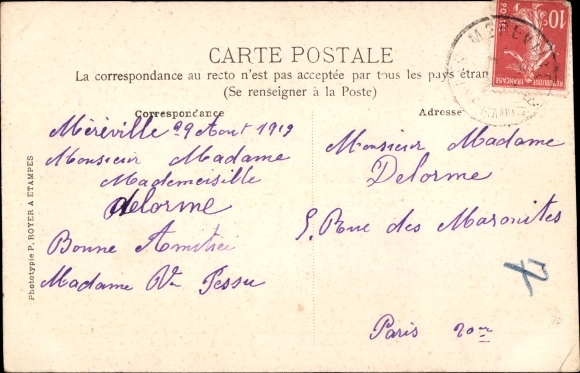 CARTE POSTALE
La correspondance au recto n'est pas acceptée par tous les pays étran
(Se renseigner à la Poste)
Correspondance
Méréville 29 Aout 1919
Monsieur Madame
Mademeisille
Delorme
Bonne Amitiei
Madame Ve Pessu
Adresse
Monsieur Madame
Delorme
5. Rue des Maronites
Paris 20me
Phototypie P. ROYER A ETAMPES
10c
POSTES
REPUBLIQUE FRANÇAISE
MEREVILLE